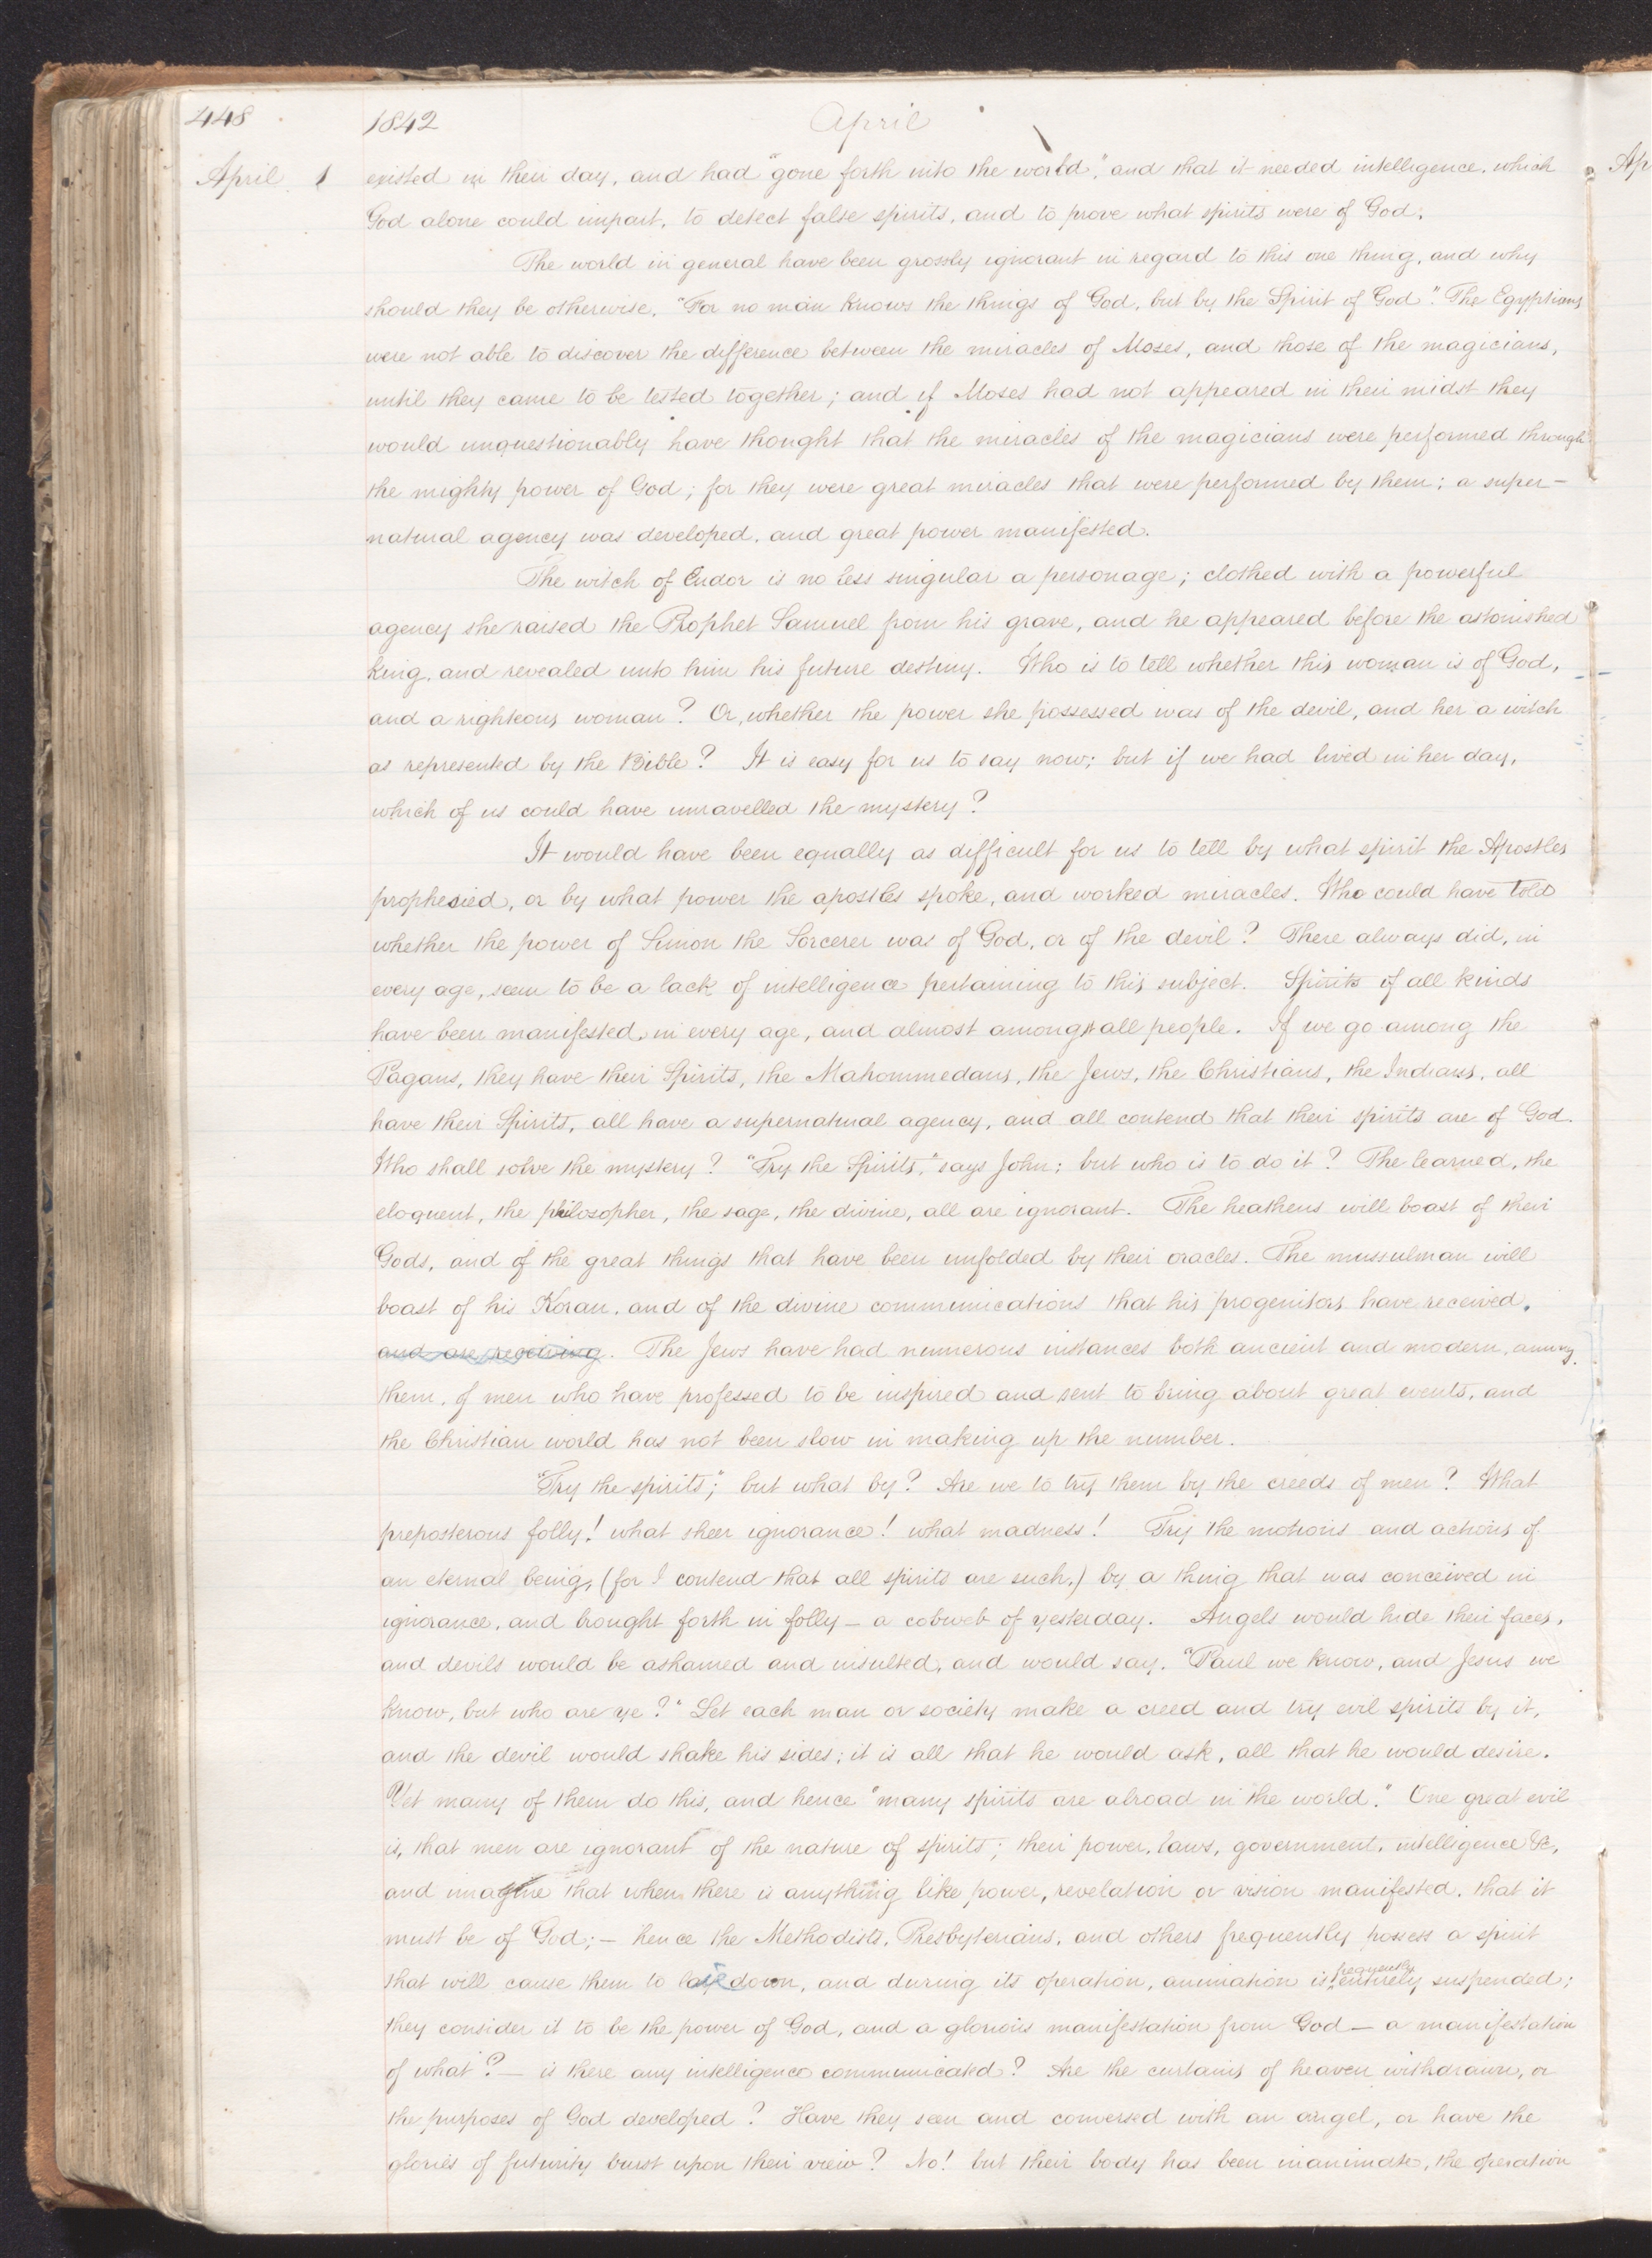 448
1842
April
April 1
existed in their day, and had "gone forth into the world," and that it needed intelligence, which
God alone could impart, to detect false spirits, and to prove what spirits were of God.
The world in general have been grossly ignorant in regard to this one thing, and why
should they be otherwise, "For no man knows the things of God, but by the Spirit of God". The Egyptians
were not able to discover the difference between the miracles of Moses, and those of the magicians,
until they came to be tested together; and if Moses had not appeared in their midst they
would unquestionably have thought that the miracles of the magicians were performed through
the mighty power of God; for they were great miracles that were performed by them; a super-
natural agency was developed, and great power manifested.
The witch of Endor is no less singular a personage; clothed with a powerful
agency she raised the Prophet Samuel from his grave, and he appeared before the astonished
king, and revealed unto him his future destiny. Who is to tell whether this woman is of God,
and a righteous woman? Or, whether the power she possessed was of the devil, and her a witch
as represented by the Bible? It is easy for us to say now; but if we had lived in her day,
which of us could have unravelled the mystery?
It would have been equally as difficult for us to tell by what spirit the Apostles
prophesied, or by what power the apostles spoke, and worked miracles. Who could have told
whether the power of Simon the Sorcerer was of God, or of the devil? There always did, in
every age, seem to be a lack of intelligence pertaining to this subject. Spirits of all kinds
have been manifested, in every age, and almost amongst all people. If we go among the
Pagans, they have their Spirits, the Mahommedans, the Jews, the Christians, the Indians, all
have their Spirits, all have a supernatural agency, and all contend that their spirits are of God.
Who shall solve the mystery? "Try the Spirits," says John; but who is to do it? The learned, the
eloquent, the philosopher, the sage, the divine, all are ignorant. The heathens will boast of their
Gods, and of the great things that have been unfolded by their oracles. The mussulman will
boast of his Koran, and of the divine communications that his progenitors have received.
and are receiving. The Jews have had numerous instances both ancient and modern, among
them, of men who have professed to be inspired and sent to bring about great events, and
the Christian world has not been slow in making up the number.
"Try the spirits"; but what by? Are we to try them by the creeds of men? What
preposterous folly! what sheer ignorance! what madness! Try the motions and actions of
an eternal being, (for I contend that all spirits are such,) by a thing that was conceived in
ignorance, and brought forth in folly — a cobweb of yesterday. Angels would hide their faces,
and devils would be ashamed and insulted, and would say, "Paul we know, and Jesus we
know, but who are ye?" Let each man or society make a creed and try evil spirits by it,
and the devil would shake his sides; it is all that he would ask, all that he would desire.
Yet many of them do this, and hence "many spirits are abroad in the world." One great evil
is, that men are ignorant of the nature of spirits; their power, laws, government, intelligence &c,
and imagine that when there is anything like power, revelation or vision manifested, that it
must be of God; — hence the Methodists, Presbyterians, and others frequently possess a spirit
that will cause them to lie down, and during its operation, animation is frequently entirely suspended;
they consider it to be the power of God, and a glorious manifestation from God — a manifestation
of what? — is there any intelligence communicated? Are the curtains of heaven withdrawn, or
the purposes of God developed? Have they seen and conversed with an angel, or have the
glories of futurity burst upon their view? No! but their body has been inanimate, the operation
Ap